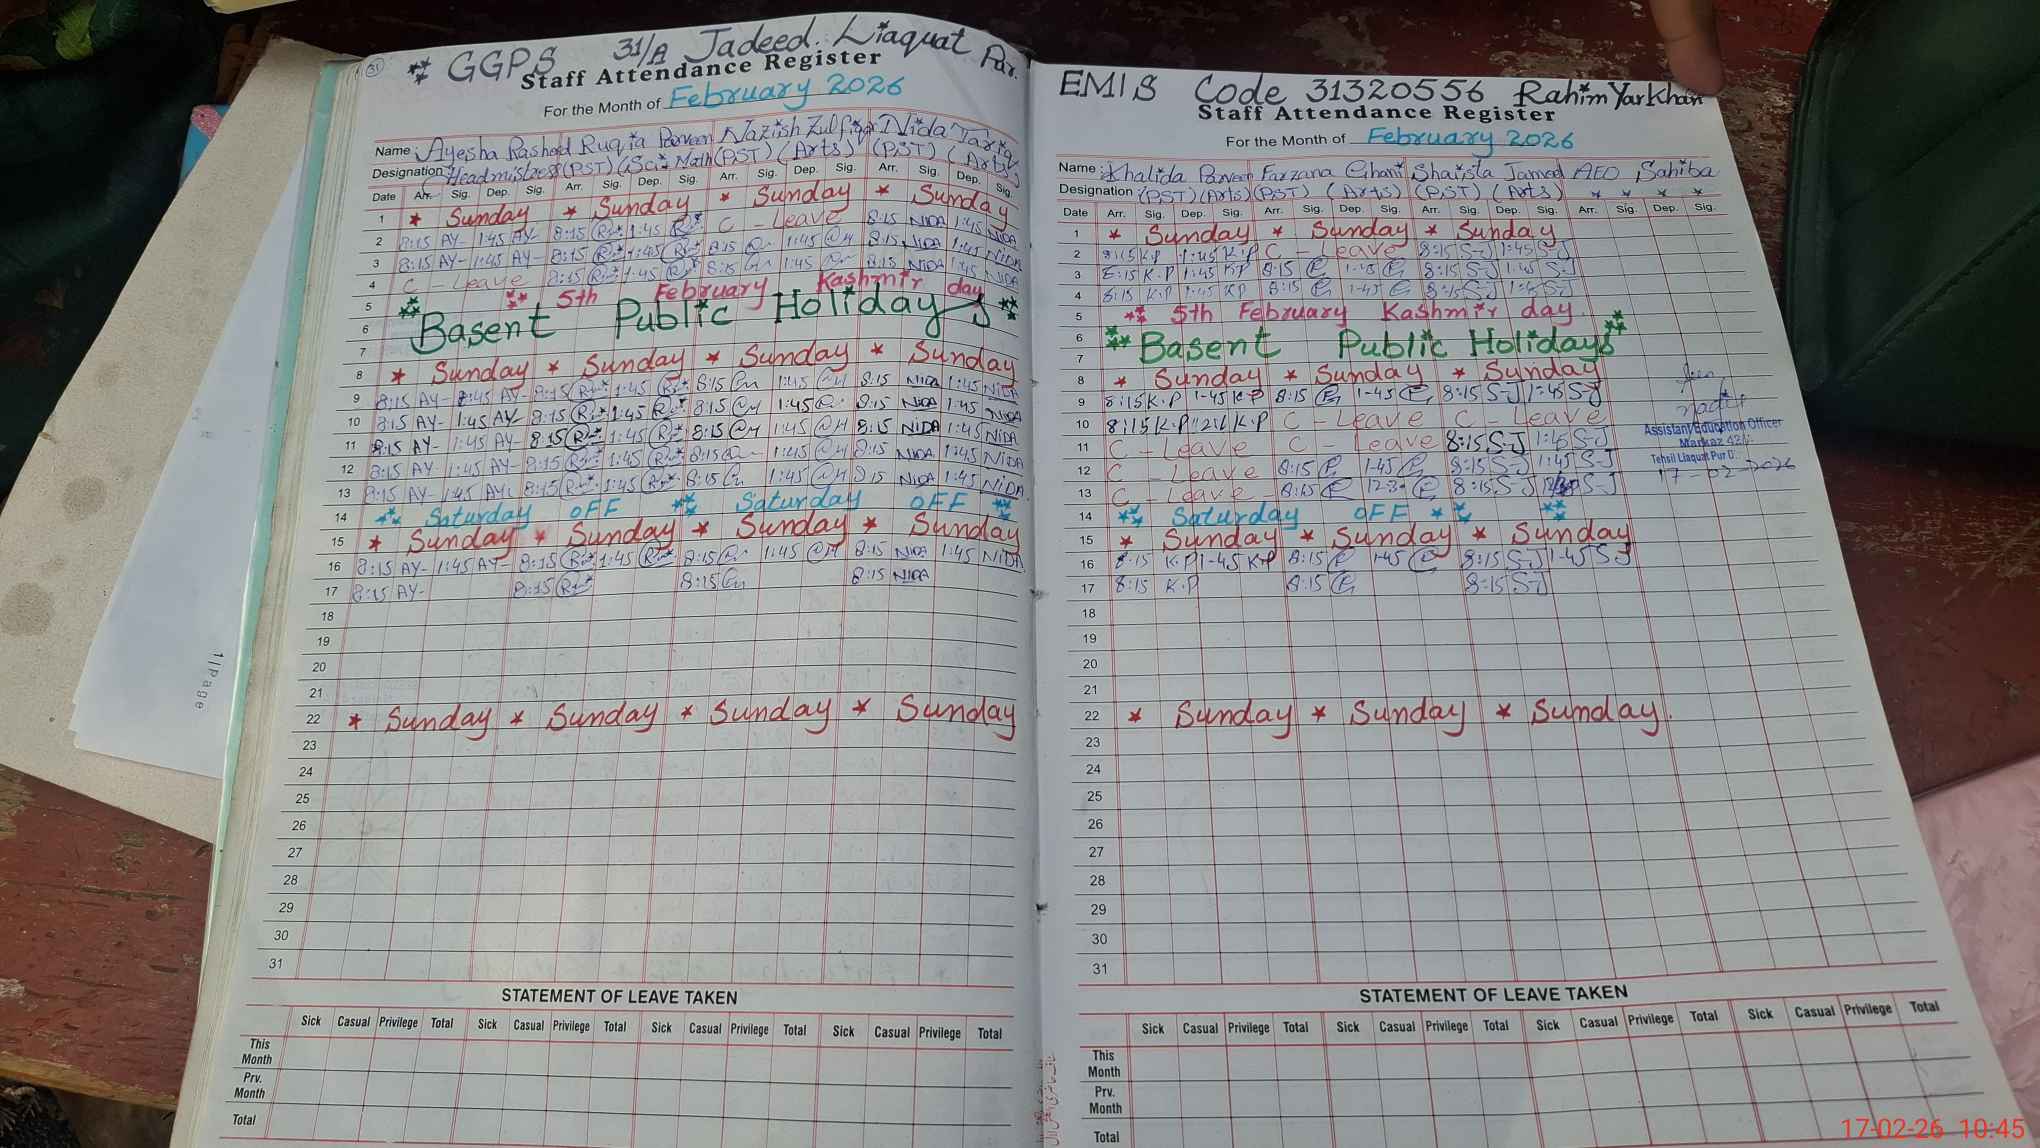 31
GGPS 31/A Jadeed. Liaquat Pur.
Staff Attendance Register
For the Month of February 2026
Name Ayesha Rasheed Ruqia Parveen Nazish Zulfiqar Nida Tariq
Designation Headmistress (PST) (Sci Math) (PST) (Arts) (PST) (Arts)
Date Arr. Sig. Dep. Sig. Arr. Sig. Dep. Sig. Arr. Sig. Dep. Sig. Arr. Sig. Dep. Sig.
1 * Sunday * Sunday * Sunday * Sunday
2 8:15 AY- 1:45 AY- 8:15 1:45 C - Leave 8:15 NIDA 1:45 NIDA
3 8:15 AY- 1:45 AY- 8:15 1:45 8:15 1:45 8:15 NIDA 1:45 NIDA
4 C - Leave 8:15 1:45 8:15 1:45 8:15 NIDA 1:45 NIDA
5 5th February Kashmir day
6 Basent Public Holidays
7
8 * Sunday * Sunday * Sunday * Sunday
9 8:15 AY- AY- 8:15 1:45 8:15 1:45 8:15 NIDA 1:45 NIDA
10 8:15 AY- 1:45 AY- 8:15 1:45 8:15 1:45 8:15 NIDA 1:45 NIDA
11 8:15 AY- 1:45 AY- 8:15 1:45 8:15 1:45 8:15 NIDA 1:45 NIDA
12 8:15 AY- 1:45 AY- 8:15 1:45 8:15 1:45 8:15 NIDA 1:45 NIDA
13 8:15 AY- 1:45 AY- 8:15 1:45 8:15 1:45 8:15 NIDA 1:45 NIDA
14 Saturday OFF Saturday OFF
15 * Sunday * Sunday * Sunday * Sunday
16 8:15 AY- 1:45 AY- 8:15 1:45 8:15 1:45 8:15 NIDA 1:45 NIDA
17 8:15 AY- 8:15 8:15 8:15 NIDA
18
19
20
21
22 * Sunday * Sunday * Sunday * Sunday
23
24
25
26
27
28
29
30
31
STATEMENT OF LEAVE TAKEN
Sick Casual Privilege Total Sick Casual Privilege Total Sick Casual Privilege Total Sick Casual Privilege Total
This Month
Prv. Month
Total
EMIS Code 31320556 Rahim Yar Khan
Staff Attendance Register
For the Month of February 2026
Name Khalida Parveen Farzana Ghani Shaista Jameel AEO Sahiba
Designation (PST) (Arts) (PST) (Arts) (PST) (Arts) * * * *
Date Arr. Sig. Dep. Sig. Arr. Sig. Dep. Sig. Arr. Sig. Dep. Sig. Arr. Sig. Dep. Sig.
1 * Sunday * Sunday * Sunday
2 8:15 K.P 1:45 K.P C - Leave 8:15 S-J 1:45 S-J
3 8:15 K.P 1:45 K.P 8:15 1-45 8:15 S-J 1:45 S-J
4 8:15 K.P 1-45 K.P 8:15 1-45 8:15 S-J 1:45 S-J
5 5th February Kashmir day.
6 Basent Public Holidays
7
8 * Sunday * Sunday * Sunday
9 8:15 K.P 1-45 K.P 8:15 1-45 8:15 S-J 1:45 S-J
10 8:15 K.P K.P C - Leave C - Leave
11 C - Leave C - Leave 8:15 S-J 1:45 S-J
12 C - Leave 8:15 1-45 8:15 S-J 1:45 S-J
13 C - Leave 8:15 12-30 8:15 S-J S-J
14 Saturday OFF
15 * Sunday * Sunday * Sunday
16 8:15 K.P 1-45 K.P 8:15 1-45 8:15 S-J 1-45 S-J
17 8:15 K.P 8:15 8:15 S-J
Assistant Education Officer
Markaz
Tehsil Liaquat Pur
17-02-2026
18
19
20
21
22 * Sunday * Sunday * Sunday.
23
24
25
26
27
28
29
30
31
STATEMENT OF LEAVE TAKEN
Sick Casual Privilege Total Sick Casual Privilege Total Sick Casual Privilege Total Sick Casual Privilege Total
This Month
Prv. Month
Total
1|Page
17-02-26 10:45